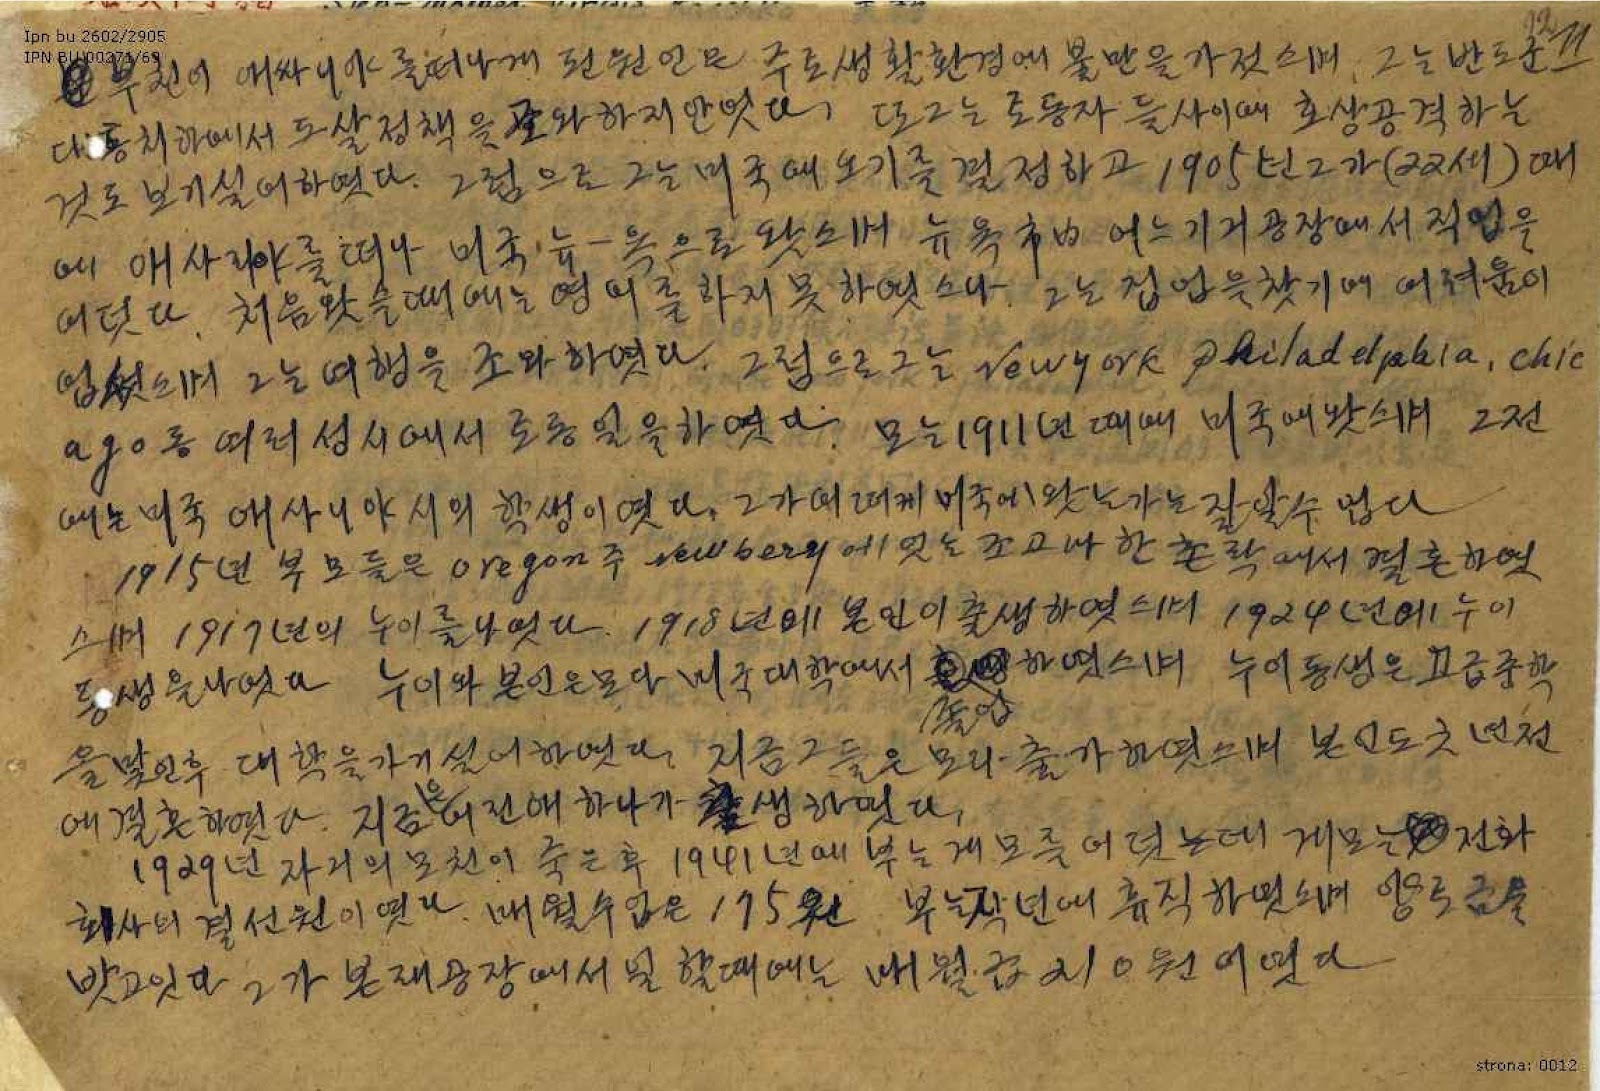 Ipn bu 2602/2905
IPN BU 00271/69
부친이 애싸니야를 떠나게 된 원인은 주로 생활환경에 불만을 가젓스며, 그는 반도
통치하에서 도살정책을 조와하지 안엿다, 또 그는 로동자 들사이에 호상공격하는
것도 보기실어하엿다. 그럼으로 그는 미국에 오기를 결정하고 1905년 그가 (22세) 때
에 애사니야를 떠나 미국 뉴-욕으로 왓스며 뉴욕市内 어느 기거공장에서 직업을
어덧다. 처음 왓슬때에는 영어를 하지 못하엿스나. 그는 직업을 찻기에 어려움이
업섯스며 그는 여행을 조와하엿다. 그럼으로 그는 New york Philadelphia, chic
ago 등 여러 성시에서 로동일을 하엿다. 모는 1911년 때에 미국에 왓스며 그전
에는 미국 애사니야 시의 학생이엿다. 그가 어떠케 미국에 왓는가는 잘 알수 업다
1915년 부모들은 oregon주 newberg에 잇는 조고마한 촌락에서 결혼하엿
스며 1917년의 누이를 나엿다. 1918년에 본인이 출생하엿스며 1924년에 누이
동생을 나엿다 누이와 본인은 모다 미국대학에서 하엿스며 누이동생은 고급중학
졸업
을 맟인후 대학을 가기 실어하엿다. 지금 그들은 모다 출가하엿스며 본인도 년전
에 결혼하엿다. 지금은 어린애 하나가 생하엿다.
1929년 자기의 모친이 죽은후 1941년에 부는 게모를 어덧는데 게모는 전화
회사의 결선원이엿다. 매월수입은 175원 부는 작년에 휴직하엿스며 양로금을
밧고잇다 그가 본재공장에서 일할때에는 매월급 210원이엿다
strona: 0012